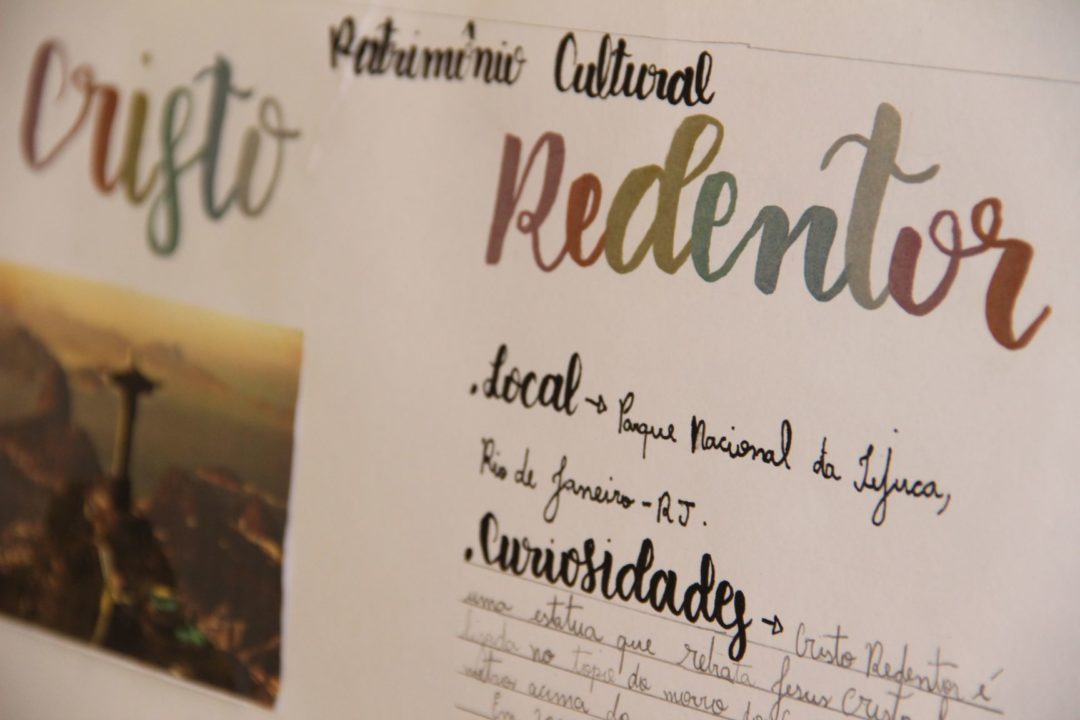 Patrimônio Cultural
Cristo Redentor
. Local → Parque Nacional da Tijuca,
Rio de Janeiro - RJ.
. Curiosidades → Cristo Redentor é
uma estátua que retrata Jesus Cristo
lizada no topo do morro do
metros acima do
Em